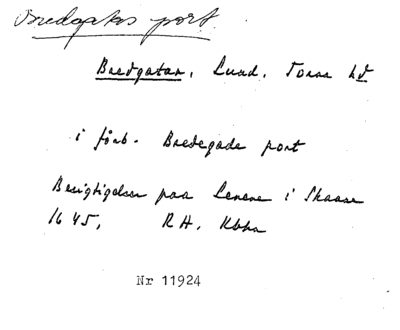 Bredgatas port
Bredgatan, Lund, Torna hd
i förb. Bredegade port
Besigtigelser paa Lenene i Skaane
1645, RH. Kbhn
Nr 11924